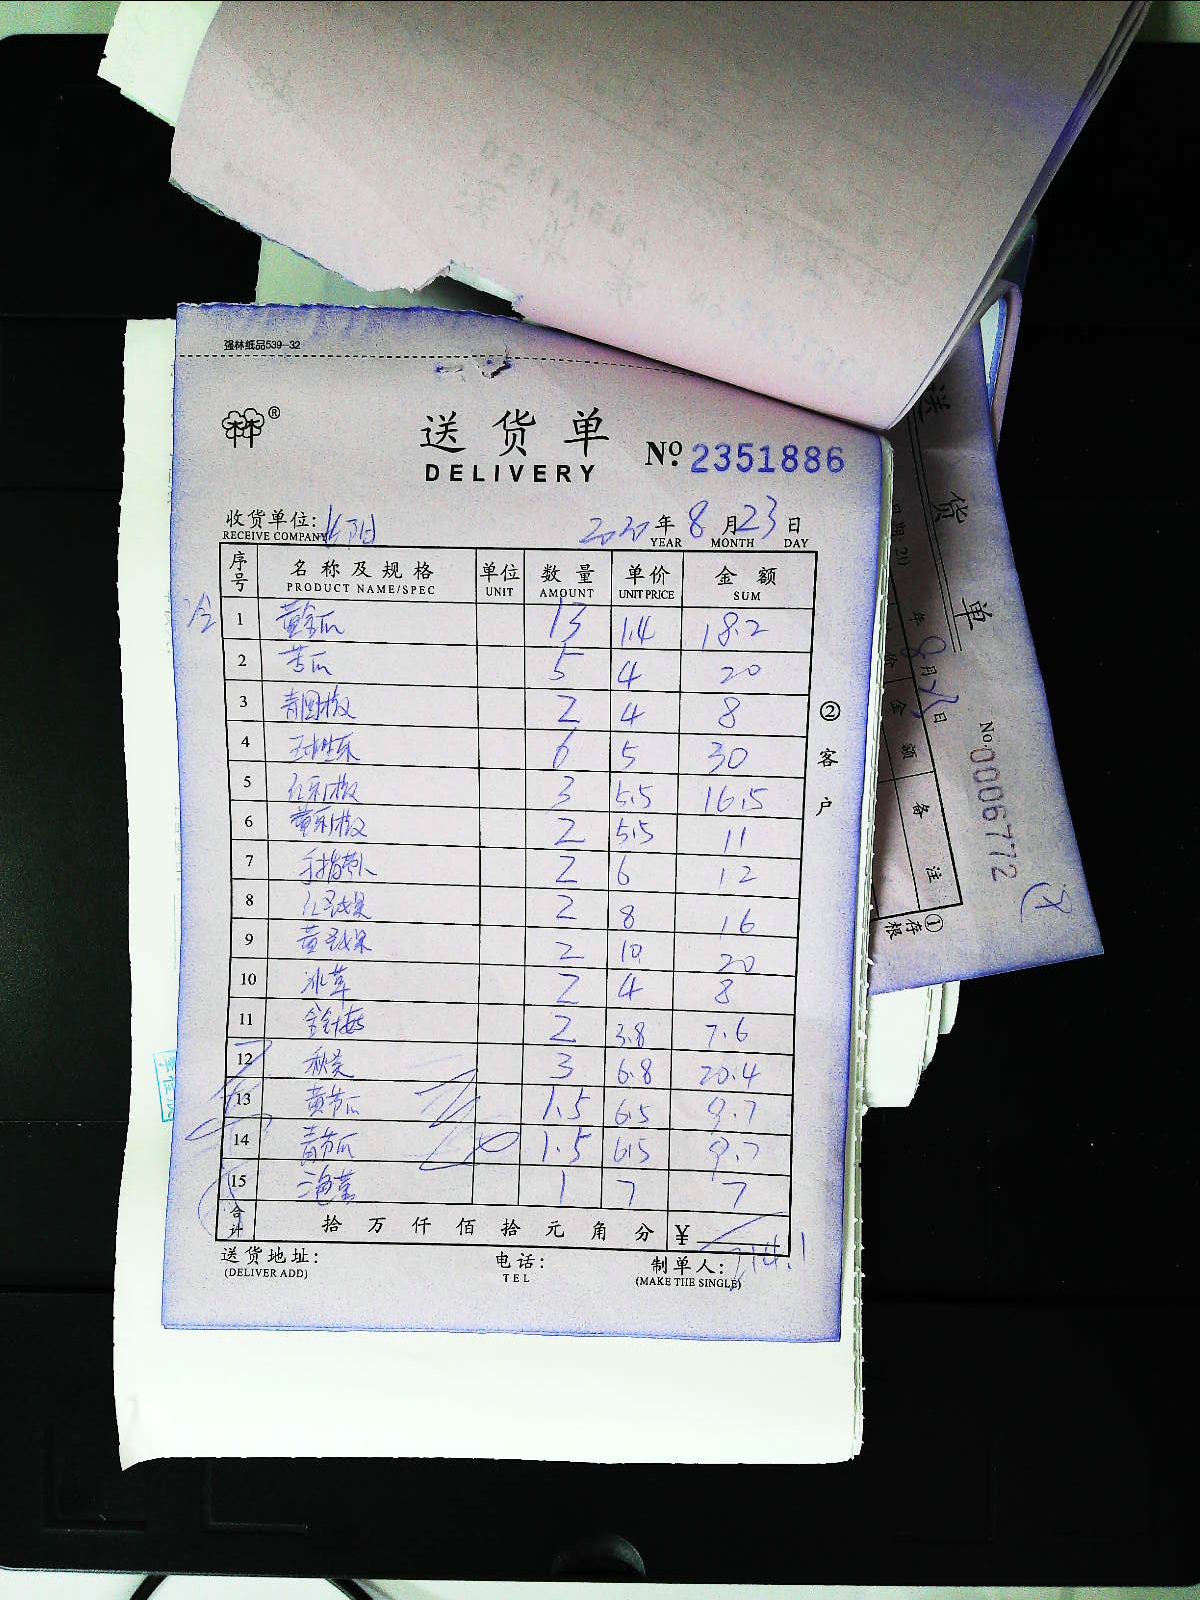 强林纸品539-32
林®
送货单
DELIVERY
No. 2351886
收货单位:
RECEIVE COMPANY
2020年8月23日
YEAR MONTH DAY
序号 名称及规格 单位 数量 单价 金额
PRODUCT NAME/SPEC UNIT AMOUNT UNIT PRICE SUM
1 黄金瓜 13 1.4 18.2
2 苦瓜 5 4 20
3 青圆椒 2 4 8
4 6 5 30
5 红彩椒 3 5.5 16.5
6 黄彩椒 2 5.5 11
7 手指萝卜 2 6 12
8 红圣女果 2 8 16
9 黄圣女果 2 10 20
10 冰草 2 4 8
11 金针菇 2 3.8 7.6
12 秋葵 3 6.8 20.4
13 黄节瓜 1.5 6.5 9.7
14 青节瓜 1.5 6.5 9.7
15 7 7
合计 拾万仟佰拾元角分 ¥ 214.1
送货地址: 电话: 制单人:
(DELIVER ADD) TEL (MAKE THE SINGLE)
②客户
送货单
日期:20 年8月 日
No. 0006772
价 金额 备注
①存根